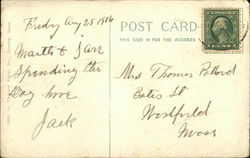 Friday Aug 25 1916
POST CARD
THIS SIDE IS FOR THE ADDRESS
Spending the
Day here
Jack
Mrs Thomas Pollard
Bates St
Westfield
Mass